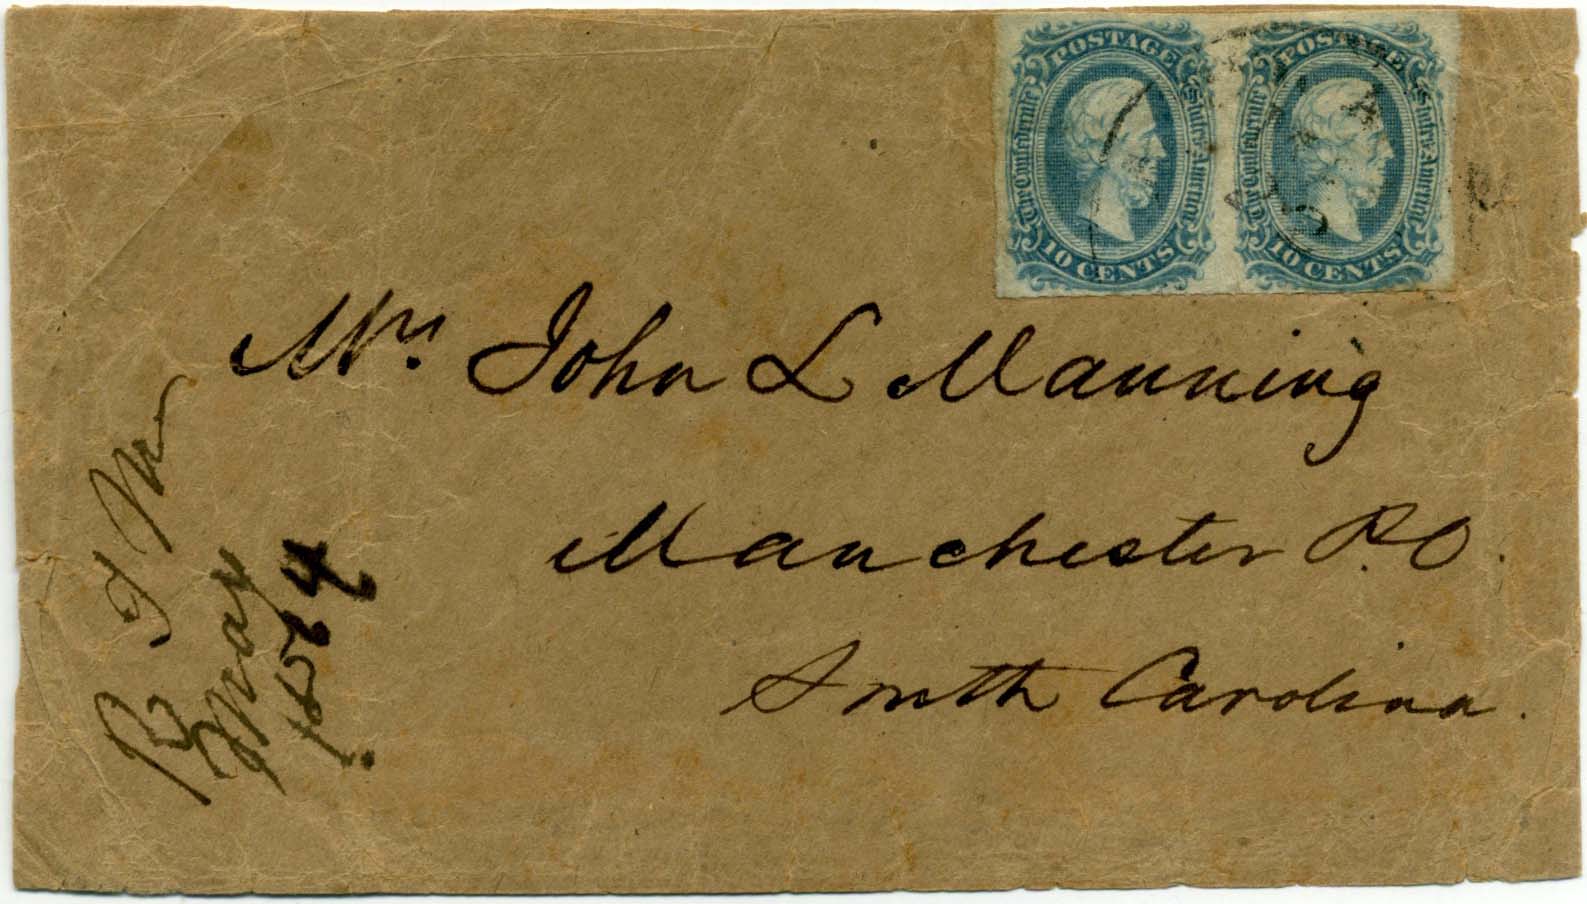 POSTAGE
The Confederate States of America
10 CENTS
POSTAGE
The Confederate States of America
10 CENTS
Mrs John L Manning
Manchester P.O.
South Carolina.
May
1864